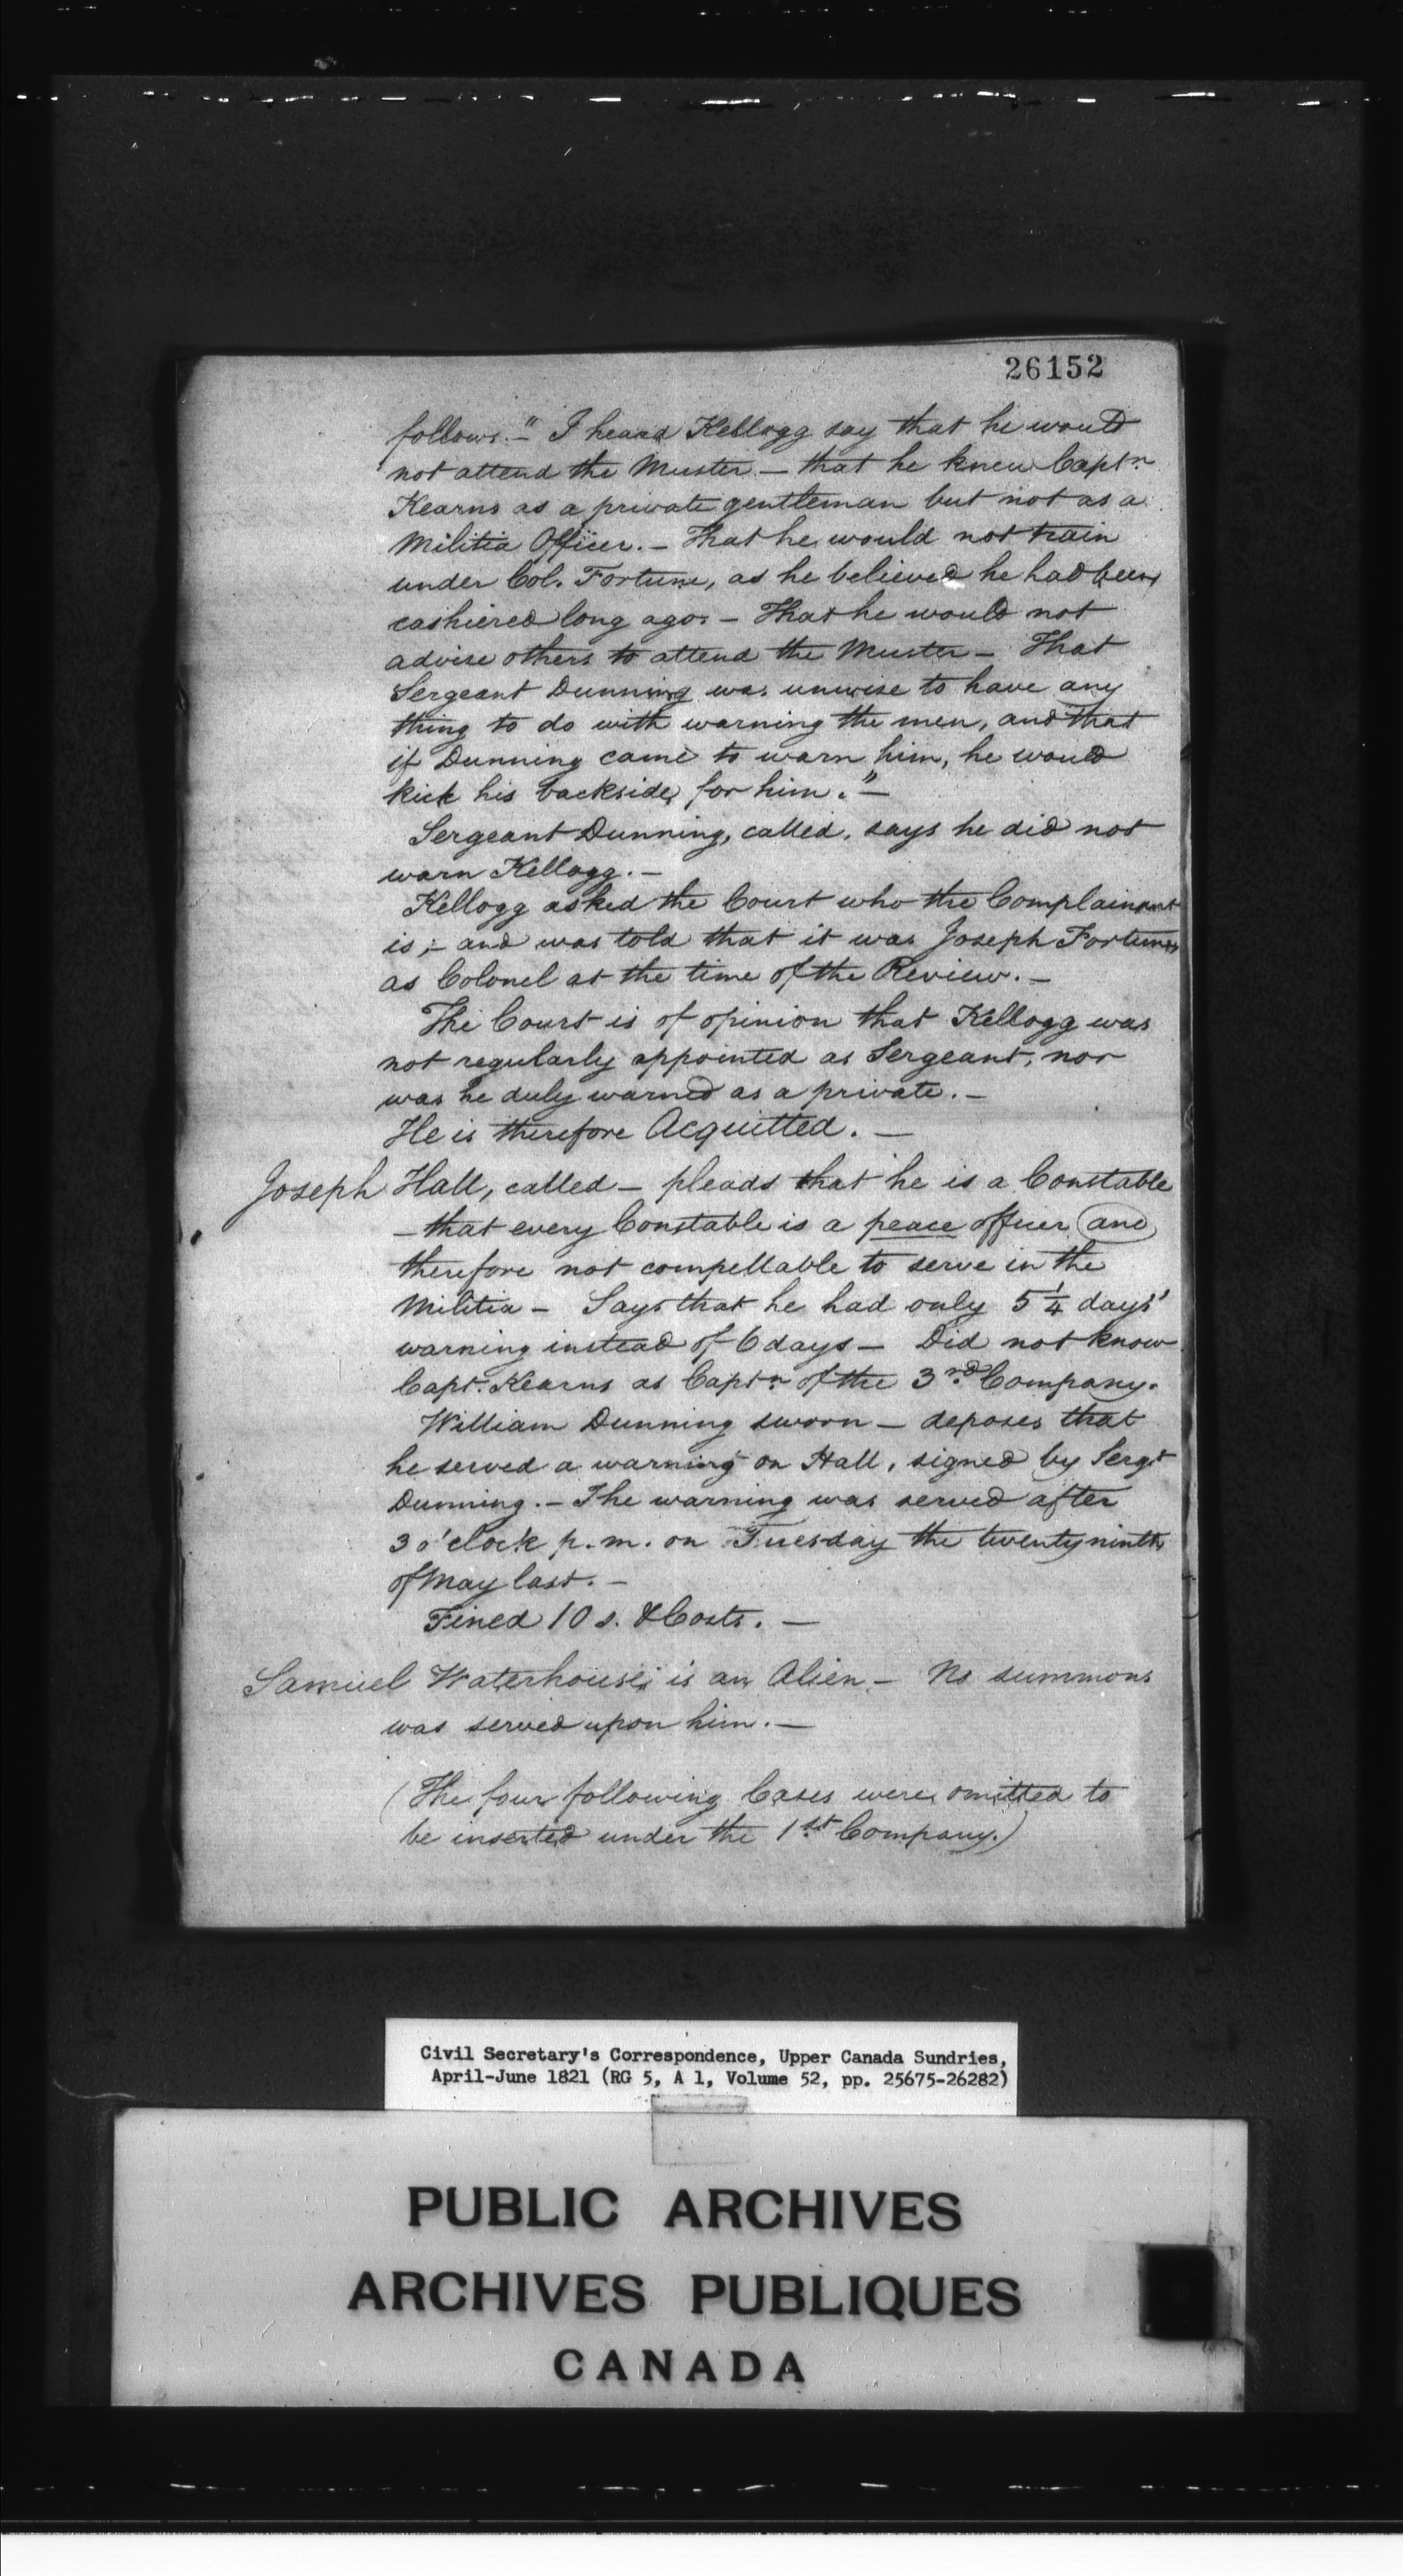 26152
follows.—" I heard Kellogg say that he would
not attend the Muster — that he knew Captn
Kearns as a private gentleman but not as a
Militia Officer. — That he would not train
under Col. Fortune, as he believed he had been
cashiered long ago. — That he would not
advise others to attend the Muster — That
Sergeant Dunning was unwise to have any
thing to do with warning the men, and that
if Dunning came to warn him, he would
kick his backside for him." —
Sergeant Dunning, called, says he did not
warn Kellogg. —
Kellogg asked the Court who the Complainant
is; — and was told that it was Joseph Fortune,
as Colonel at the time of the Review. —
The Court is of opinion that Kellogg was
not regularly appointed as Sergeant, nor
was he duly warned as a private. —
He is therefore Acquitted. —
Joseph Hall, called — pleads that he is a Constable
— that every Constable is a peace officer and
therefore not compellable to serve in the
Militia — Says that he had only 5 1/4 days'
warning instead of 6 days — Did not know
Capt. Kearns as Captn of the 3rd Company.
William Dunning sworn — deposes that
he served a warning on Hall, signed by Sergt
Dunning. — The warning was served after
3 o'clock p.m. on Tuesday the twenty ninth
of May last. —
Fined 10 s. & Costs. —
Samuel Waterhouse; is an Alien. — No summons
was served upon him. —
(The four following Cases were omitted to
be inserted under the 1st Company.)
Civil Secretary's Correspondence, Upper Canada Sundries,
April-June 1821 (RG 5, A 1, Volume 52, pp. 25675-26282)
PUBLIC ARCHIVES
ARCHIVES PUBLIQUES
CANADA